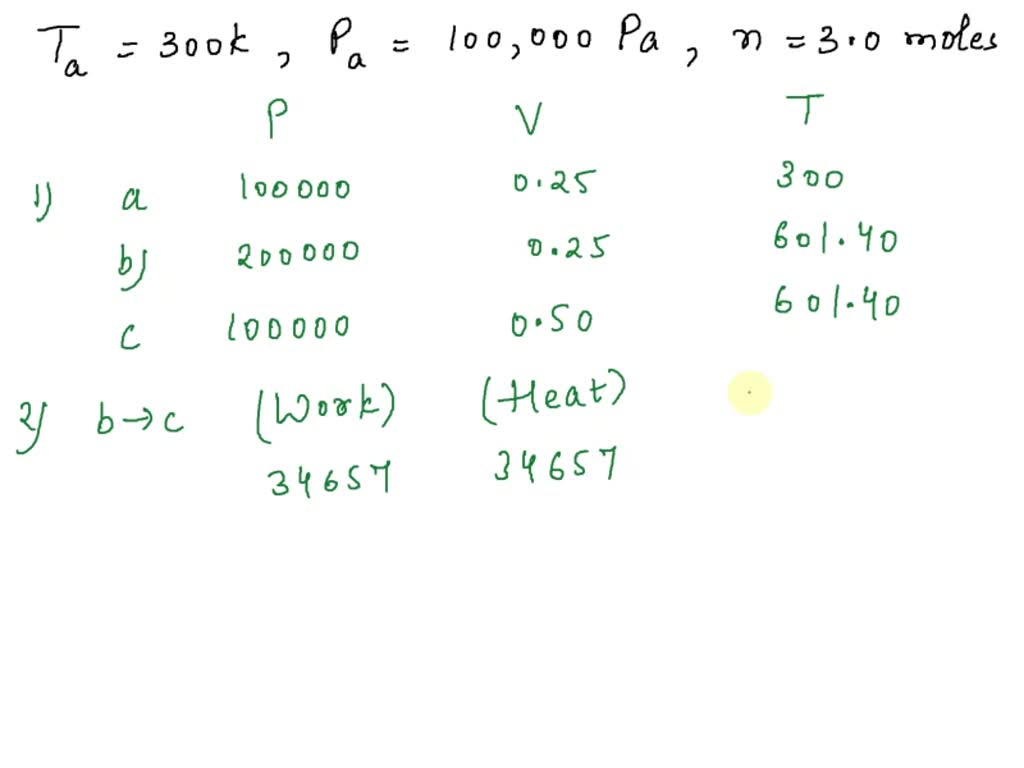 Ta = 300k, Pa = 100,000 Pa, n = 3.0 moles
P V T
1) a 100000 0.25 300
b) 200000 0.25 601.40
c 100000 0.50 601.40
2) b→c (Work) (Heat)
34657 34657